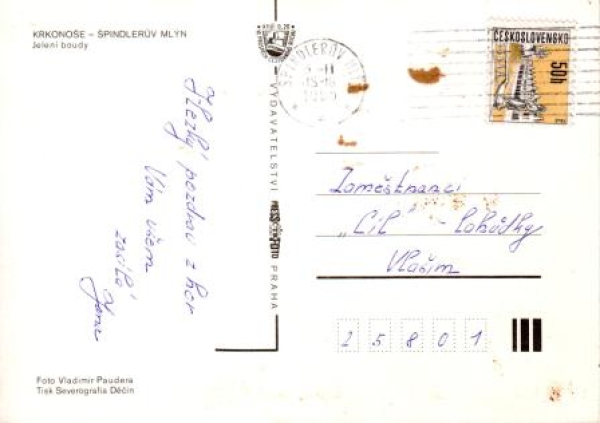 KRKONOŠE – ŠPINDLERŮV MLÝN
Jelení boudy
Hezký pozdrav z hor
Vám všem
zasílá
VYDAVATELSTVÍ
PRESSFOTO
PRAHA
ŠPINDLERŮV MLÝN
ČESKOSLOVENSKO
50h
Zaměstnanci
„Cíl" - lahůdky
Vlašim
25801
Foto Vladimír Paudera
Tisk Severografia Děčín